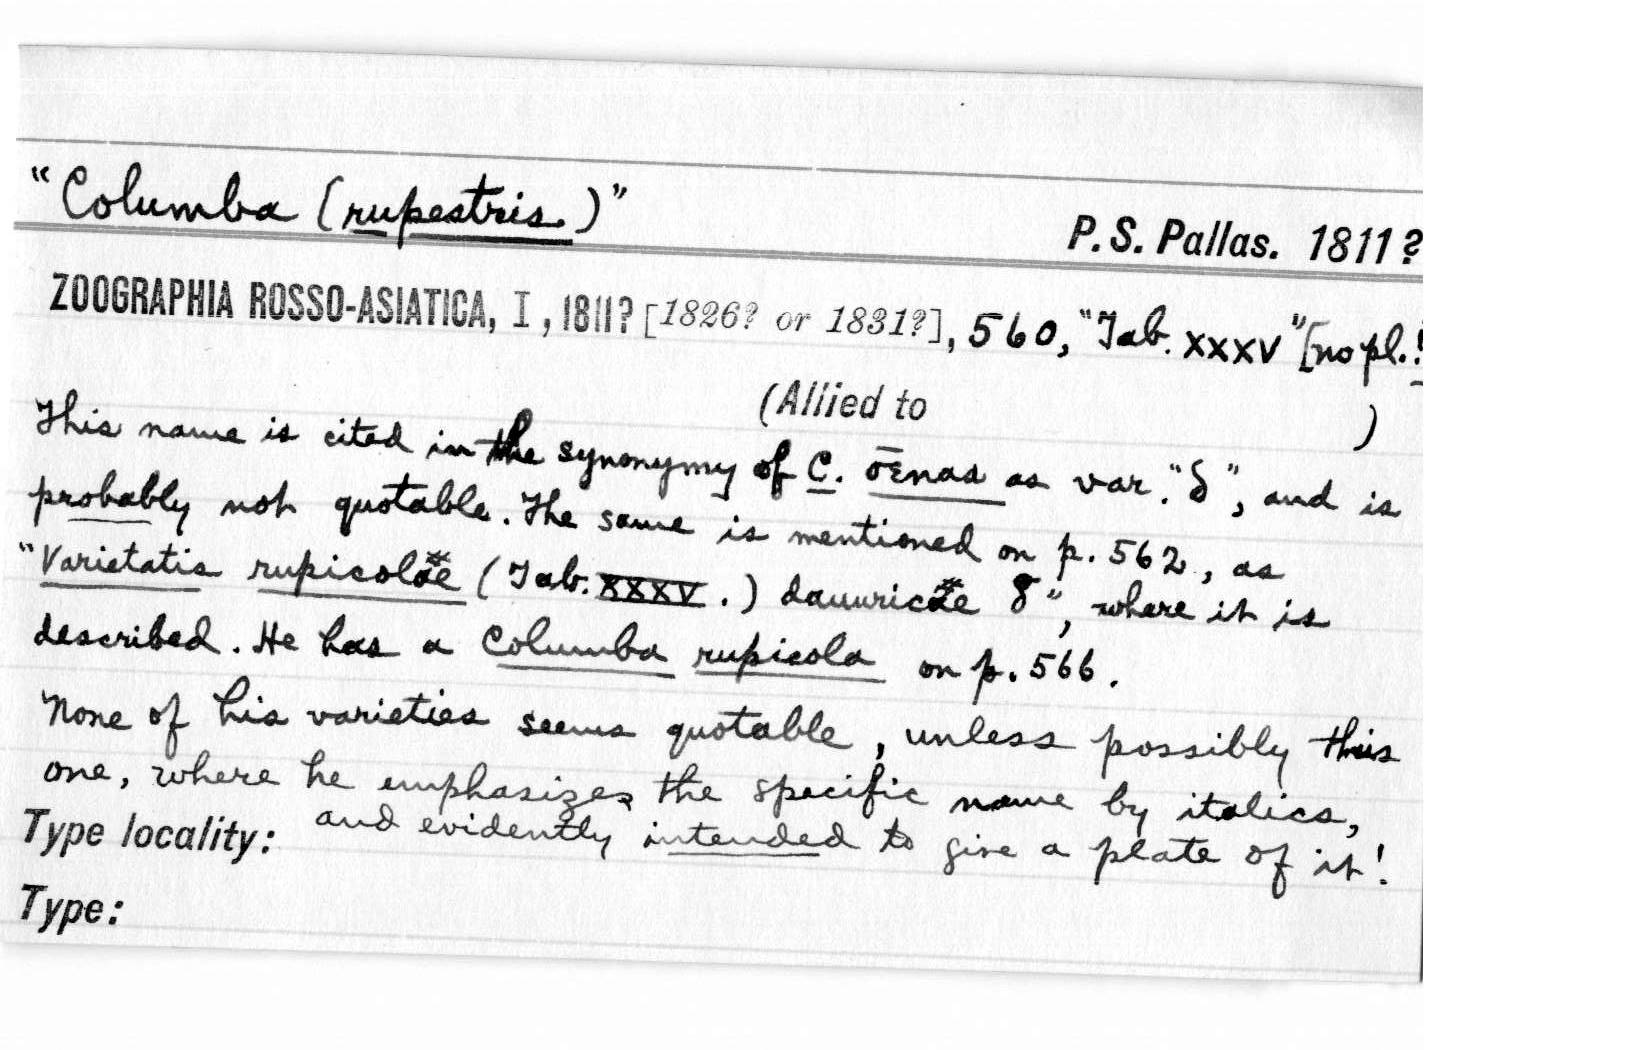 "Columba (rupestris.)"
P.S. Pallas. 1811?
ZOOGRAPHIA ROSSO-ASIATICA, I, 1811? [1826? or 1831?], 560, "Tab. XXXV" [no pl.!
(Allied to )
This name is cited in the synonymy of C. œnas as var. "δ", and is
probably not quotable. The same is mentioned on p. 562, as
"Varietatis rupicolæ (Tab. XXXV.) dauuricæ δ", where it is
described. He has a Columba rupicola on p. 566.
None of his varieties seems quotable, unless possibly this
one, where he emphasizes the specific name by italics,
and evidently intended to give a plate of it!
Type locality:
Type: